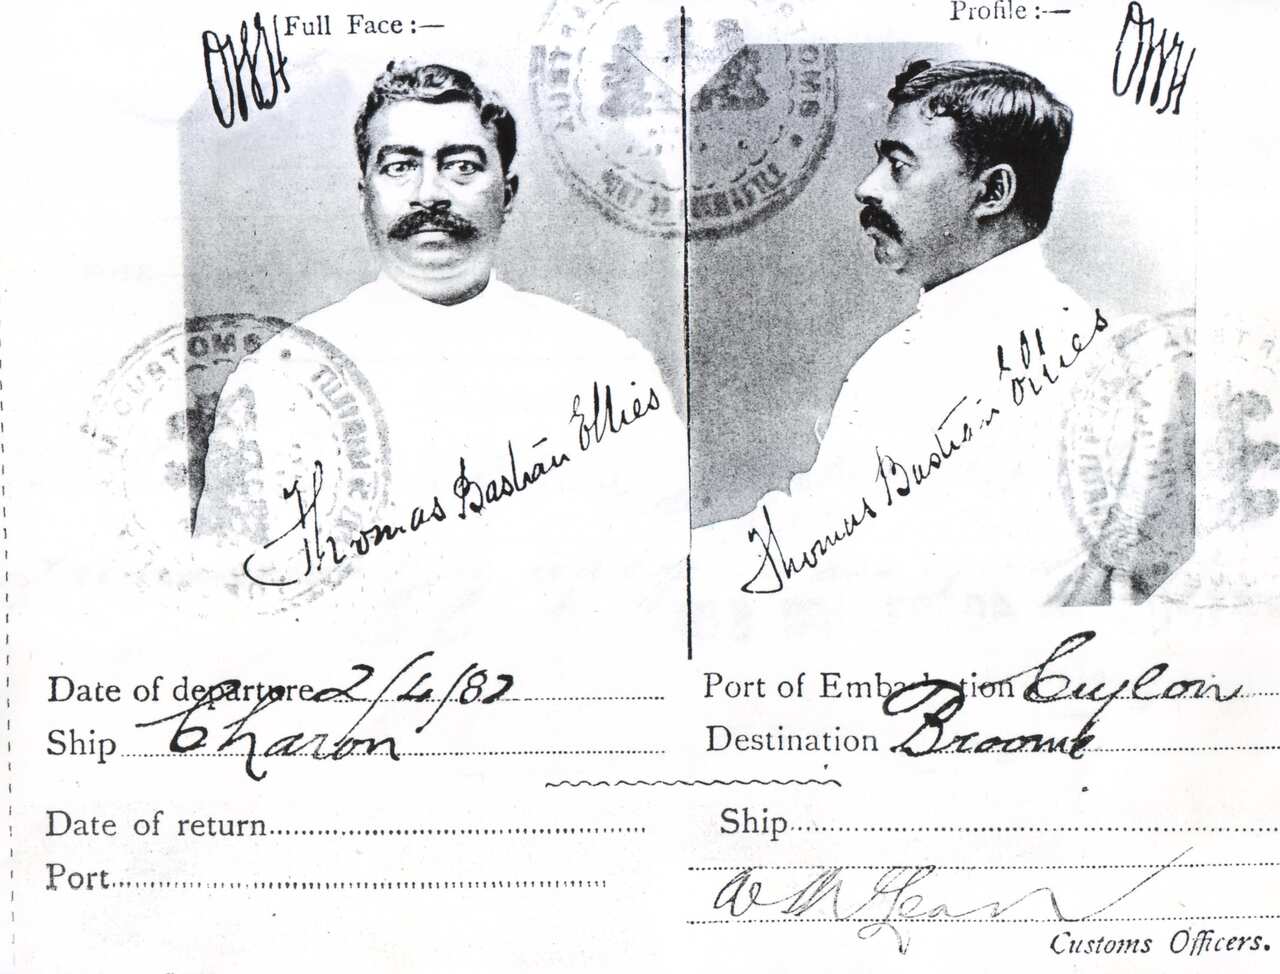 Full Face :—
Profile :—
CUSTOMS
Thomas Bastian Ellies
Thomas Bastian Ellies
Date of departure 2/4/82
Port of Embarkation Ceylon
Ship Charon
Destination Broome
Date of return
Ship
Port
Customs Officers.